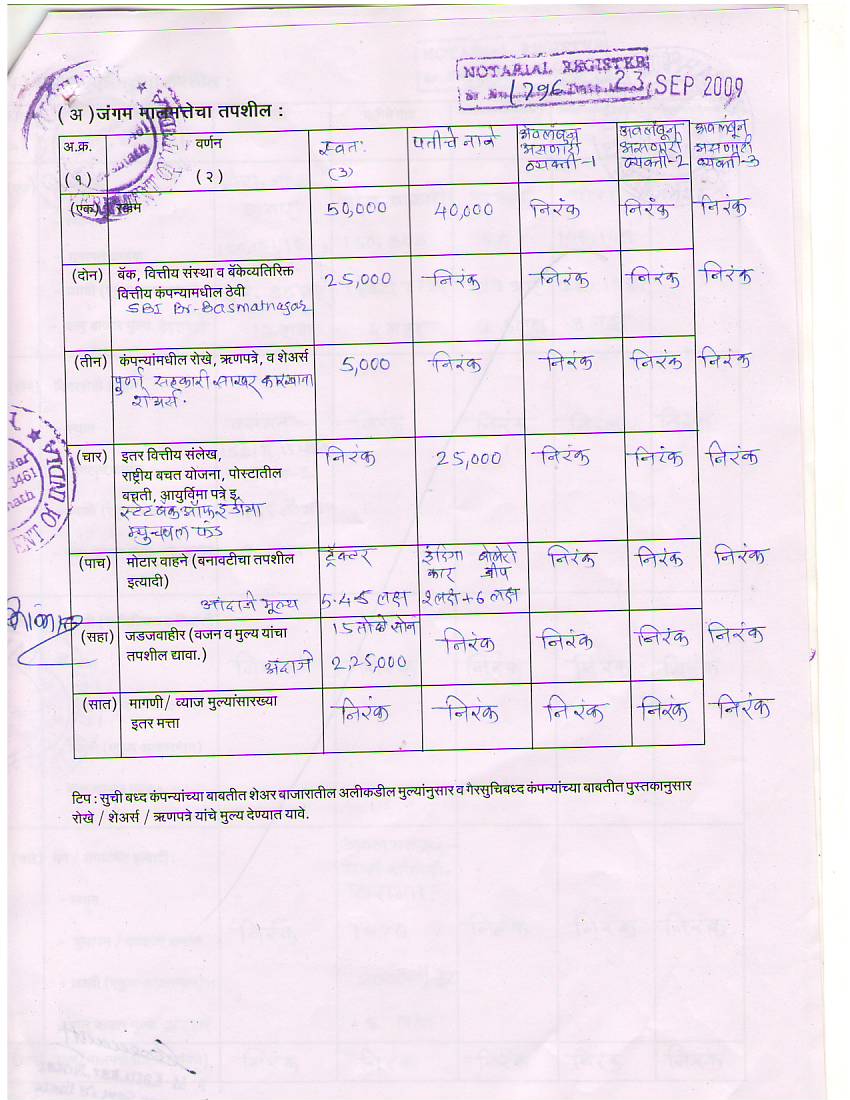 NOTARIAL REGISTER
Sr. No. 1796 Date 23 SEP 2009
( अ )जंगम मालमत्तेचा तपशील :
अ.क्र. वर्णन स्वतः पतीचे नावे अवलंबून असणारी व्यक्ती-1 अवलंबून असणारी व्यक्ती-2 अवलंबून असणारी व्यक्ती-3
(१) (२) (3)
(एक) रक्कम 50,000 40,000 निरंक निरंक निरंक
(दोन) बॅक, वित्तीय संस्था व बॅकेव्यतिरिक्त 25,000 निरंक निरंक निरंक निरंक
वित्तीय कंपन्यामधील ठेवी
SBI Br-Basmatnagar
(तीन) कंपन्यांमधील रोखे, ऋणपत्रे, व शेअर्स 5,000 निरंक निरंक निरंक निरंक
पुर्णा सहकारी साखर कारखाना
शेअर्स.
(चार) इतर वित्तीय संलेख, निरंक 25,000 निरंक निरंक निरंक
राष्ट्रीय बचत योजना, पोस्टातील
बचती, आयुर्विमा पत्रे इ.
स्टेट बँक ऑफ इंडीया
म्युचवल फंड
(पाच) मोटार वाहने (बनावटीचा तपशील ट्रॅक्टर इंडिगा बोलेरो निरंक निरंक निरंक
इत्यादी) कार जीप
अंदाजे मूल्य 5.45 लक्ष 2 लक्ष + 6 लक्ष
(सहा) जडजवाहीर (वजन व मुल्य यांचा 15 तोळे सोने निरंक निरंक निरंक निरंक
तपशील द्यावा.) अंदाजे 2,25,000
(सात) मागणी/ व्याज मुल्यांसारख्या निरंक निरंक निरंक निरंक निरंक
इतर मत्ता
टिप : सुची बध्द कंपन्यांच्या बाबतीत शेअर बाजारातील अलीकडील मुल्यांनुसार व गैरसुचिबध्द कंपन्यांच्या बाबतीत पुस्तकानुसार
रोखे / शेअर्स / ऋणपत्रे यांचे मुल्य देण्यात यावे.